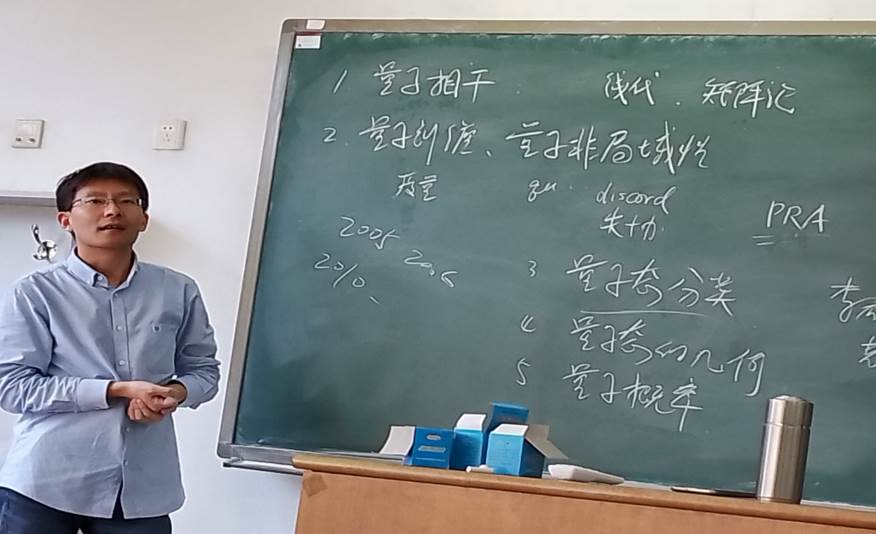 1 量子相干. 线代. 矩阵论
2. 量子纠缠、量子非局域性
qu. discord
失协
PRA
2005
2010、
3 量子态分类
4 量子态的几何
5 量子概率
李